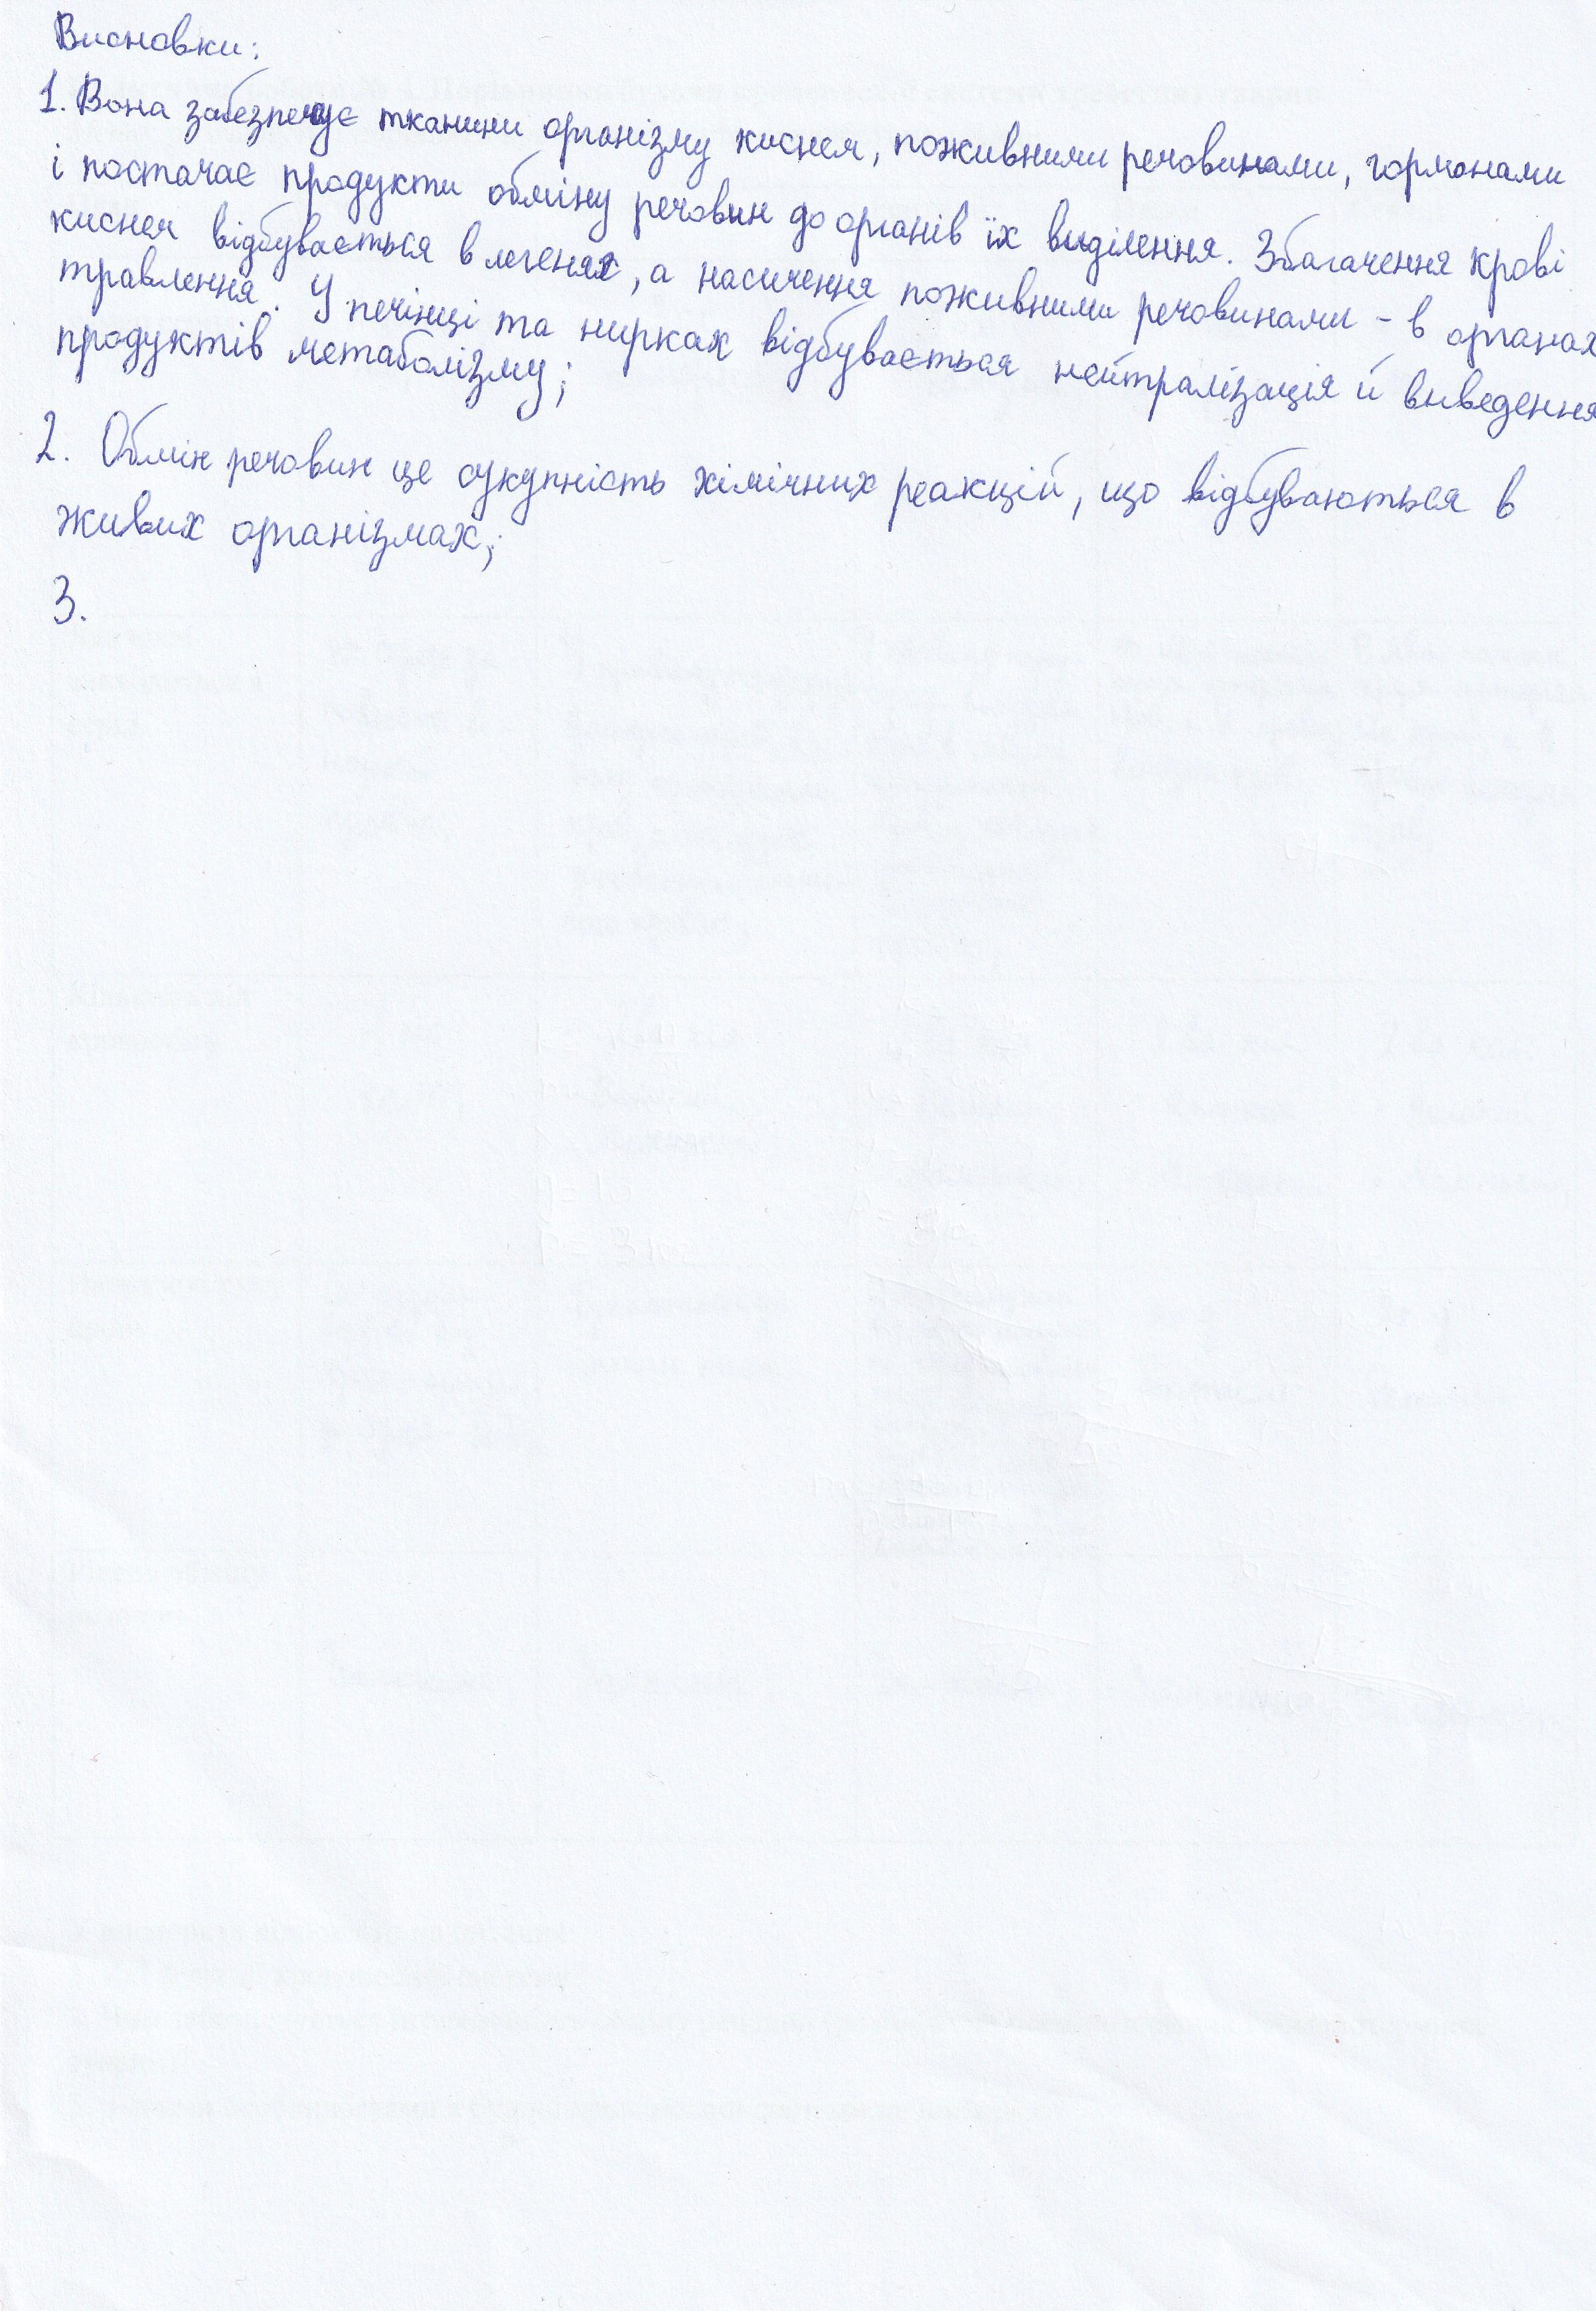 Висновки:
1. Вона забезпечує тканини організму киснем, поживними речовинами, гормонами
і постачає продукти обміну речовин до органів їх виділення. Збагачення крові
киснем відбувається в легенях, а насичення поживними речовинами - в органах
травлення. У печінці та нирках відбувається нейтралізація й виведення
продуктів метаболізму;
2. Обмін речовин це сукупність хімічних реакцій, що відбуваються в
живих організмах;
3.